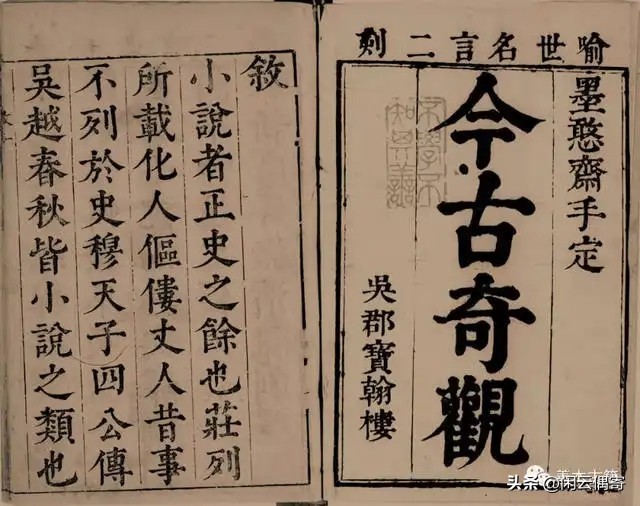 喻世名言二刻
墨憨齋手定
今古奇觀
吳郡寶翰樓
敘
小說者正史之餘也莊列
所載化人傴僂丈人昔事
不列於史穆天子四公傳
吳越春秋皆小說之類也
善本古籍
头条@闲云偶寄